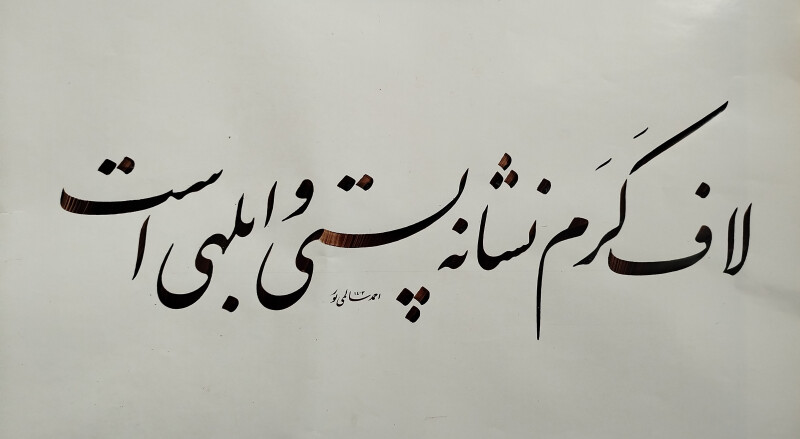 لاف کَرَم نشانه پستی و ابلهی است
احمد سالمی پور ۱۴۰۳